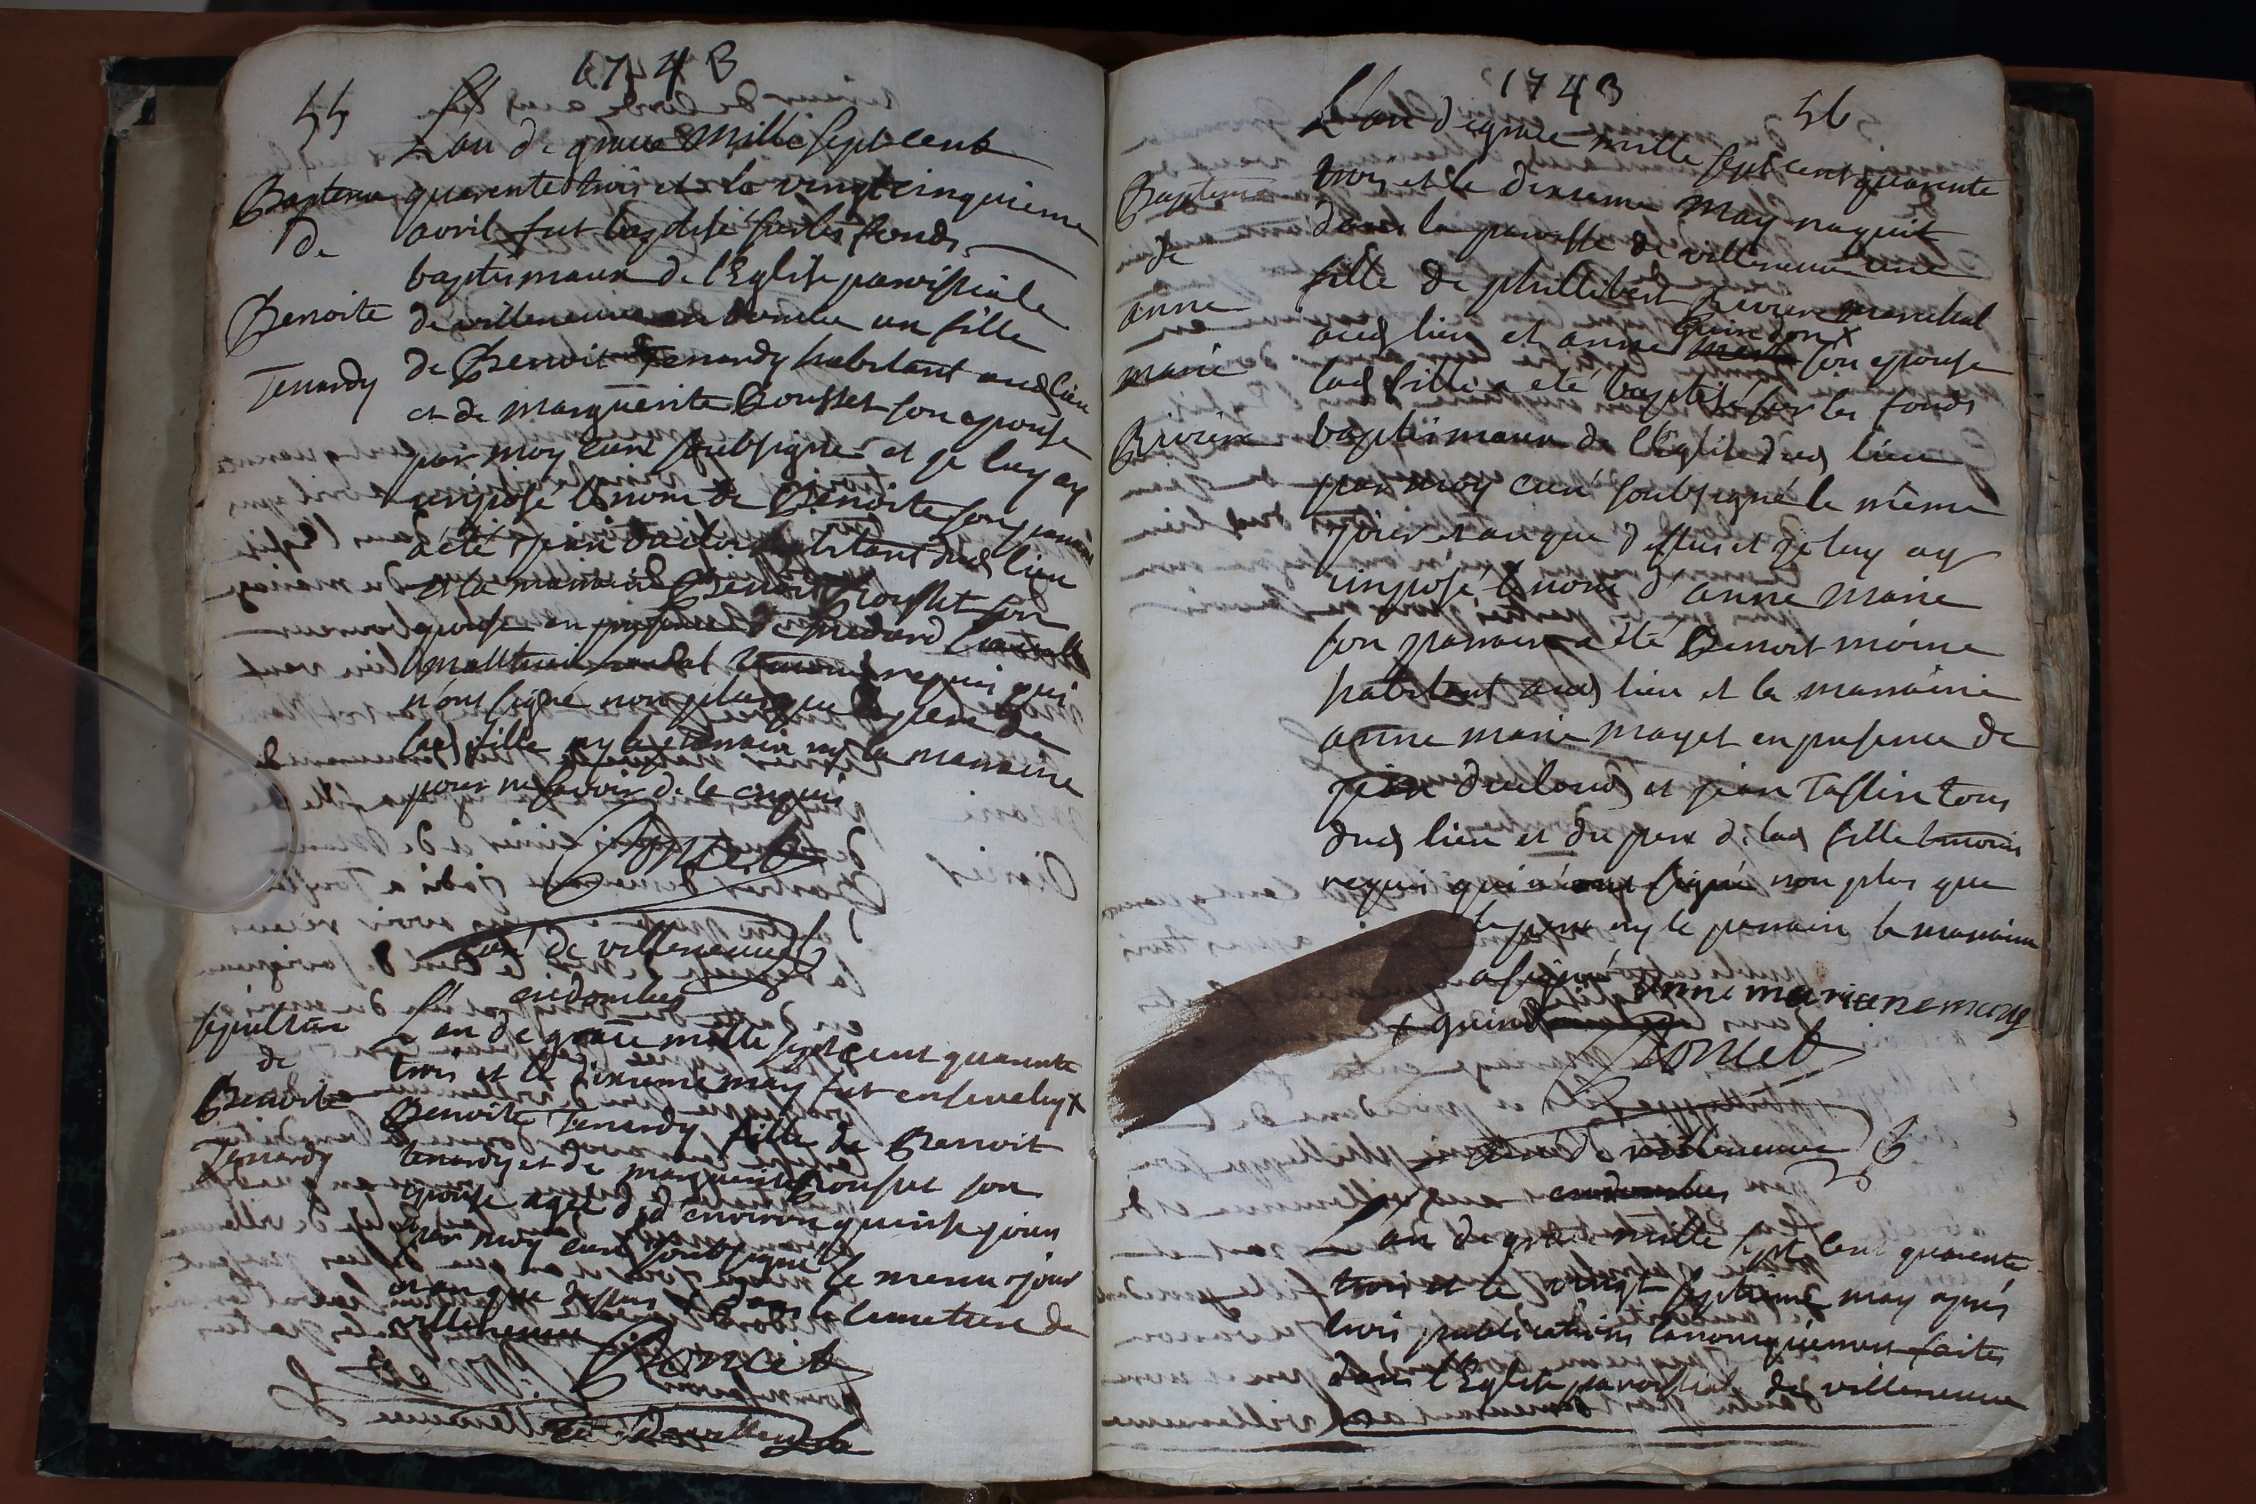 1743
55
L'an de grace mille sept cent
Bapteme
quarente trois et le vingt cinquieme
de
avril fut baptisé sur les fonds
baptismaux de l'Eglise parroissiale
Benoite
de villeneuve en dombe un fille
Tenardy
de Benoit Tenardy habitant aud lieu
et de marguerite Rousset son epouse
par moy curé soubsigné et je luy ay
imposé le nom de Benoite son parain
a été jean habitant dud lieu
et la maraine Rousset son
epouse en presence de
requis qui
n'ont signé non plus que le pere de
lad fille ny le parrain ny la marraine
pour ne savoir de ce requis
Poncet
curé de villeneuve
en dombes
sepulture
de
Benoite
Tenardy
L'an de grace mille sept cent quarente
trois et le dixieme may fut ensevely x
Benoite Tenardy fille de Benoit
tenardy et de marguerite Rousset son
epouse agée d'environ quinse jours
par moy curé soubsigné le meme jour
et an que dessus dans le cemettiere de
villeneuve Poncet
curé de villeneuve
1743
56
L'an de grace mille sept cent quarente
Bapteme
trois et le dixieme may naquit
de
dans la paroisse de villeneuve une
anne
fille de phillibert Rivier marechal
Guindon x
marie
aud lieu et anne son epouse
lad fille a eté baptisé sur les fonds
Riviere
baptismaux de l'Eglise dud lieu
par moy curé soubsigné le même
jour et an que dessus et je luy ay
imposé le nom d'anne marie
son parrain a été Benoit moine
habitant aud lieu et la marraine
anne marie mayet en presence de
jean et jean Tassin tous
dud lieu et du pere de lad fille temoins
requis qui n'ont signé non plus que
le pere ny le parrain la marraine
a signé anne marie
x
Poncet
curé de villeneuve
en dombes
L'an de grace mille sept cent quarente
trois et le vingt septieme may après
trois publications canoniquement faites
dans l'Eglise paroissiale de villeneuve